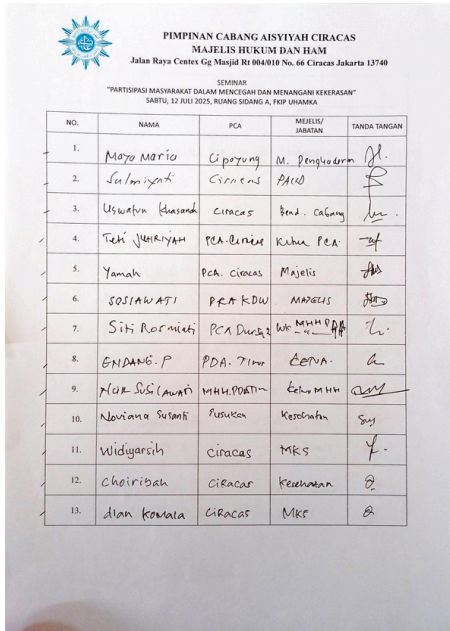 PIMPINAN CABANG AISYIYAH CIRACAS
MAJELIS HUKUM DAN HAM
Jalan Raya Centex Gg Masjid Rt 004/010 No. 66 Ciracas Jakarta 13740
SEMINAR
"PARTISIPASI MASYARAKAT DALAM MENCEGAH DAN MENANGANI KEKERASAN"
SABTU, 12 JULI 2025, RUANG SIDANG A, FKIP UHAMKA
NO. NAMA PCA MEJELIS/ JABATAN TANDA TANGAN
1. Maya Maria Cipayung M.
2. Salmiyati
3. Uswatun Khasanah Ciracas Bend. Cabang
4. Teti JUHRIYAH PCA. Ciracas Ketua PCA.
5. Yamah PCA. Ciracas Majelis
6. SOSIAWATI PRA KDW MAJELIS
7. Siti Rosmiati PCA
8. ENDANG. P PDA. Timur KETUA.
9. Nur Susilawati MHH.PDA Ketua MHH
10. Noviana Susanti Susukan Kesehatan
11. Widiyarsih ciracas MKS
12. Choiriyah CiRacas Kesehatan
13. dian Komala CiRacas MKS